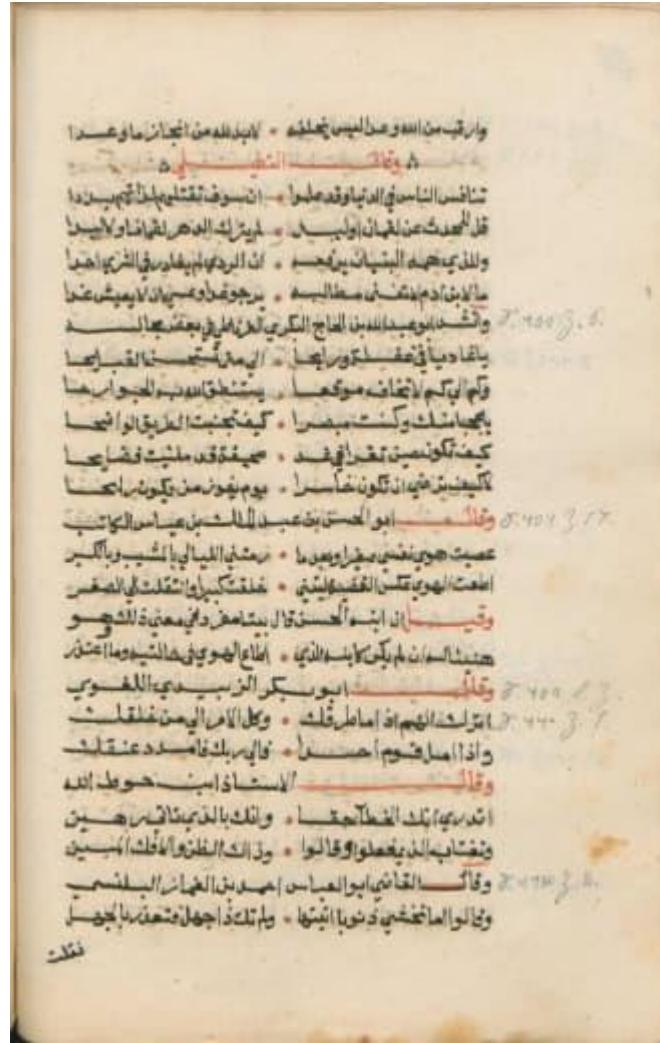 وارقب من الله وعدا ليس يخلفه • لابد لله من انجاز ما وعدا
وقال التطيلي
تنافس الناس في الدنيا وقد علموا • ان سوف تقتلهم لذاتهم بددا
قل للمحدث عن لقمان اولبد • لم يترك الدهر لقمانا ولا لبدا
وللذي همه البنيان يرفعه • ان الردي لم يغادر في الثري احدا
ما لابن ادم لا تفني مطالبه • يرجو غدا وعسي ان لا يعيش غدا
وانشد ابو عبدالله بن الحاج البكري في بعض مجالسه
يا غاديا في غفلة ورايحا • الي متي تستحسن القبايحا
وكم الي كم لا تخاف موقفا • يستنطق الله به الجوارحا
يا عجبا منك وكنت مبصرا • كيف تجنبت الطريق الواضحا
كيف تكون حين تقرا في غد • صحيفة قد مليت فضايحا
ام كيف ترضي ان تكون خاسرا • يوم يفوز من يكون رابحا
وقال ابو الحسن بن عبد الملك بن عياش الكاتب
عصيت هوي نفسي صغيرا وبعدما • رمتني الليالي بالمشيب وبالكبر
اطعت الهوي عكس القضية ليتني • خلقت كبيرا وانتقلت الي الصغر
وقيل ان ابنه الحسن قال بيتا مفردا في معني ذلك وهو
هنيئا له ان لم يكن كابنه الذي • اطاع الهوي في حالتيه وما اعتذر
وقال ابو بكر الزبيدي اللغوي
اترك الهم اذا ما طرقك • وكل الامر الي من خلقك
واذا امل قوم احدا • فالي ربك فامدد عنقك
وقال الاستاذ ابن حوط الله
اتدري انك الخطا حقا • وانك بالذي تاتي رهين
وتغتاب الذي فعلوا وقالوا • وذاك الظن والافك المبين
وقال القاضي ابو العباس احمد بن الغماز البلنسي
وقالوا اما تخشي ذنوبا اتيتها • ولم تك ذا جهل فتعذر بالجهل
فقلت